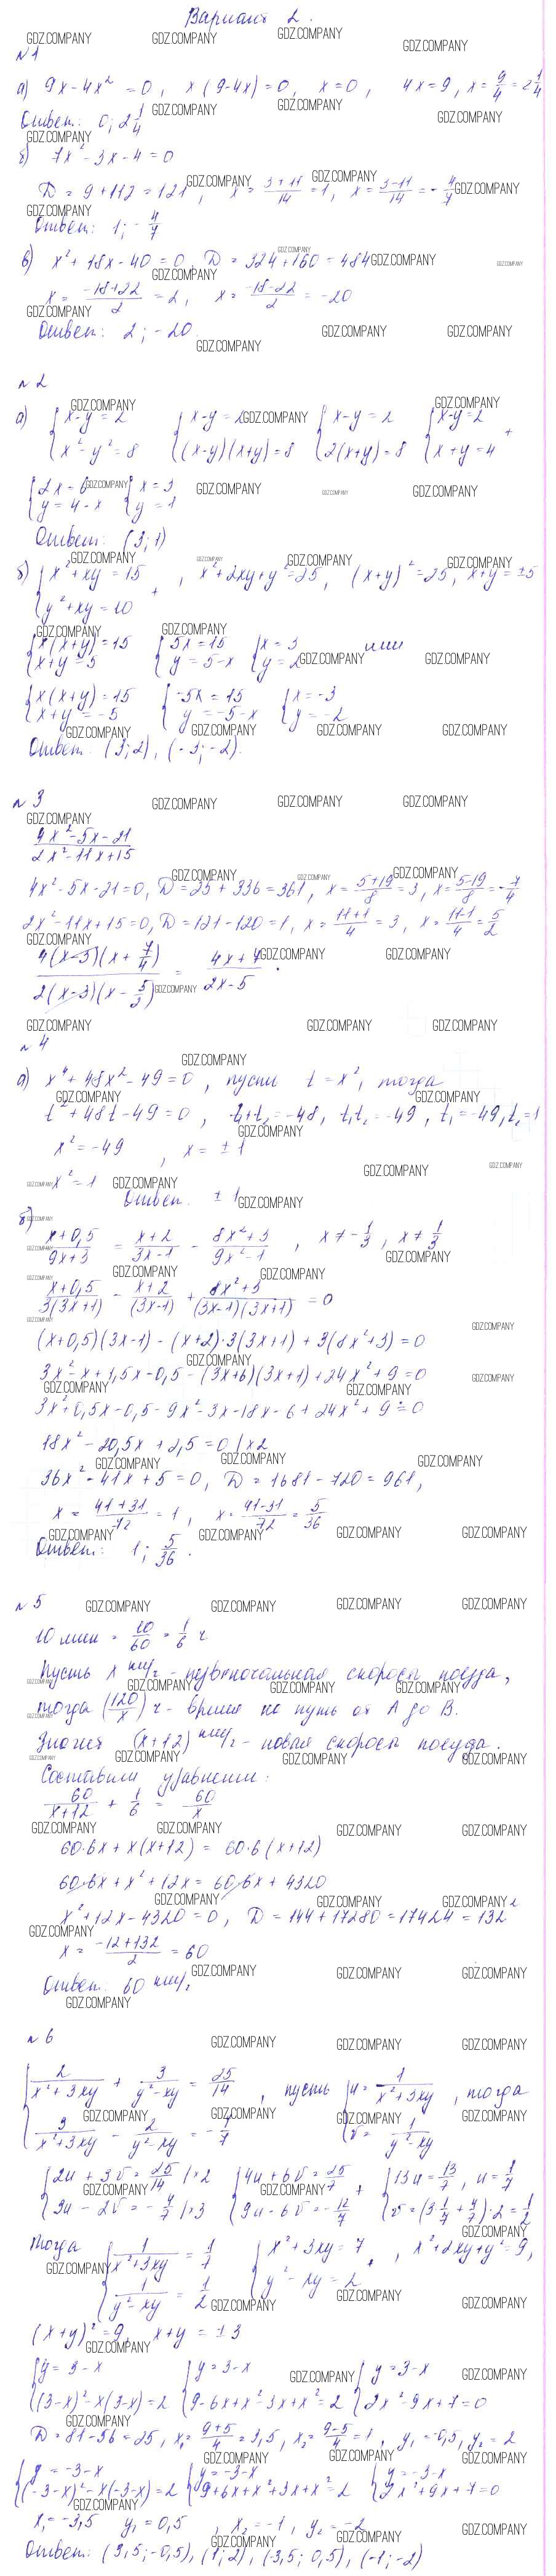 Вариант 2.
№1
а) 9x - 4x² = 0, x(9-4x) = 0, x = 0, 4x = 9, x = 9/4 = 2 1/4
Ответ: 0; 2 1/4
б) 7x² - 3x - 4 = 0
D = 9 + 112 = 121, x = (3+11)/14 = 1, x = (3-11)/14 = -4/7
Ответ: 1; -4/7
в) x² + 18x - 40 = 0, D = 324 + 160 = 484
x = (-18+22)/2 = 2, x = (-18-22)/2 = -20
Ответ: 2; -20.
№2
а) {x-y = 2 {x-y = 2 {x-y = 2 {x-y = 2
{x² - y² = 8 {(x-y)(x+y) = 8 {2(x+y) = 8 {x+y = 4 +
{2x = 6 {x = 3
{y = 4-x {y = 1
Ответ: (3; 1)
б) {x² + xy = 15 +, x² + 2xy + y² = 25, (x+y)² = 25, x+y = ±5
{y² + xy = 10
{x(x+y) = 15 {5x = 15 {x = 3 или
{x+y = 5 {y = 5-x {y = 2
{x(x+y) = 15 {-5x = 15 {x = -3
{x+y = -5 {y = -5-x {y = -2
Ответ: (3; 2), (-3; -2).
№3
(4x² - 5x - 21)/(2x² - 11x + 15)
4x² - 5x - 21 = 0, D = 25 + 336 = 361, x = (5+19)/8 = 3, x = (5-19)/8 = -7/4
2x² - 11x + 15 = 0, D = 121 - 120 = 1, x = (11+1)/4 = 3, x = (11-1)/4 = 5/2
4(x-3)(x + 7/4)/(2(x-3)(x - 5/2)) = (4x+7)/(2x-5).
№4
а) x⁴ + 48x² - 49 = 0, пусть t = x², тогда
t² + 48t - 49 = 0, t₁+t₂ = -48, t₁t₂ = -49, t₁ = -49, t₂ = 1
x² = -49, x = ±1
x² = 1
Ответ. ±1
б)
(x+0,5)/(9x+3) = (x+2)/(3x-1) - (8x²+3)/(9x²-1), x ≠ -1/3, x ≠ 1/3
(x+0,5)/(3(3x+1)) - (x+2)/(3x-1) + (8x²+3)/((3x-1)(3x+1)) = 0
(x+0,5)(3x-1) - (x+2)·3(3x+1) + 3(8x²+3) = 0
3x² - x + 1,5x - 0,5 - (3x+6)(3x+1) + 24x² + 9 = 0
3x² + 0,5x - 0,5 - 9x² - 3x - 18x - 6 + 24x² + 9 = 0
18x² - 20,5x + 2,5 = 0 |x2
36x² - 41x + 5 = 0, D = 1681 - 720 = 961,
x = (41+31)/72 = 1, x = (41-31)/72 = 5/36
Ответ: 1; 5/36.
№5
10 мин = 10/60 = 1/6 ч
Пусть x км/ч - первоначальная скорость поезда,
тогда (120/x) ч - время на путь от A до B.
Значит (x+12) км/ч - новая скорость поезда.
Составим уравнение:
60/(x+12) + 1/6 = 60/x
60·6x + x(x+12) = 60·6(x+12)
60·6x + x² + 12x = 60·6x + 4320
x² + 12x - 4320 = 0, D = 144 + 17280 = 17424 = 132²
x = (-12+132)/2 = 60
Ответ: 60 км/ч
№6
{2/(x²+3xy) + 3/(y²-xy) = 25/14, пусть {u = 1/(x²+3xy), тогда
{3/(x²+3xy) - 2/(y²-xy) = -4/7 {v = 1/(y²-xy)
{2u + 3v = 25/14 |x2 {4u + 6v = 25/7 + {13u = 13/7, u = 1/7
{3u - 2v = -4/7 |x3 {9u - 6v = -12/7 {v = (3·1/7 + 4/7):2 = 1/2
Тогда {1/(x²+3xy) = 1/7 {x² + 3xy = 7 +, x² + 2xy + y² = 9,
{1/(y²-xy) = 1/2 {y² - xy = 2
(x+y)² = 9, x+y = ±3
{y = 3-x {y = 3-x {y = 3-x
{(3-x)² - x(3-x) = 2 {9-6x+x²-3x+x² = 2 {2x² - 9x + 7 = 0
D = 81 - 56 = 25, x₁ = (9+5)/4 = 3,5, x₂ = (9-5)/4 = 1, y₁ = -0,5, y₂ = 2
{y = -3-x {y = -3-x {y = -3-x
{(-3-x)² - x(-3-x) = 2 {9+6x+x²+3x+x² = 2 {2x² + 9x + 7 = 0
x₁ = -3,5 y₁ = 0,5, x₂ = -1, y₂ = -2
Ответ: (3,5; -0,5), (1; 2), (-3,5; 0,5), (-1; -2)